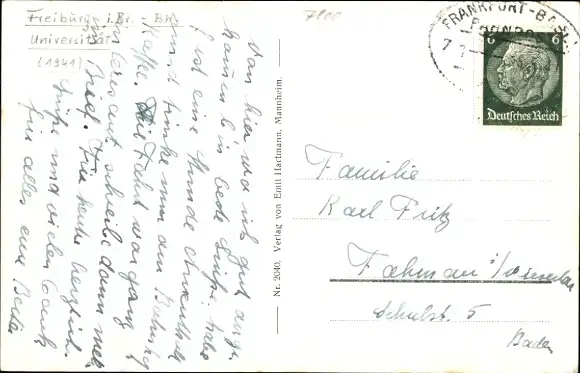 Freiburg i.Br. -
Universität
(1941)
7800
Von hier wo ich gut ange-
kommen bin beste Grüße habe
jetzt eine Stunde Aufenthalt
und trinke nun am Bahnhof
Kaffee. Die Fahrt war ganz
interessant schreibe dann mehr
im Brief. Für heute herzlich.
Grüße und vielen Dank
für alles eure Berta
Nr. 2040. Verlag von Emil Hartmann, Mannheim.
FRANKFURT-BASEL
6 6
Deutsches Reich
Familie
Karl Fritz
Schulst. 5
Baden